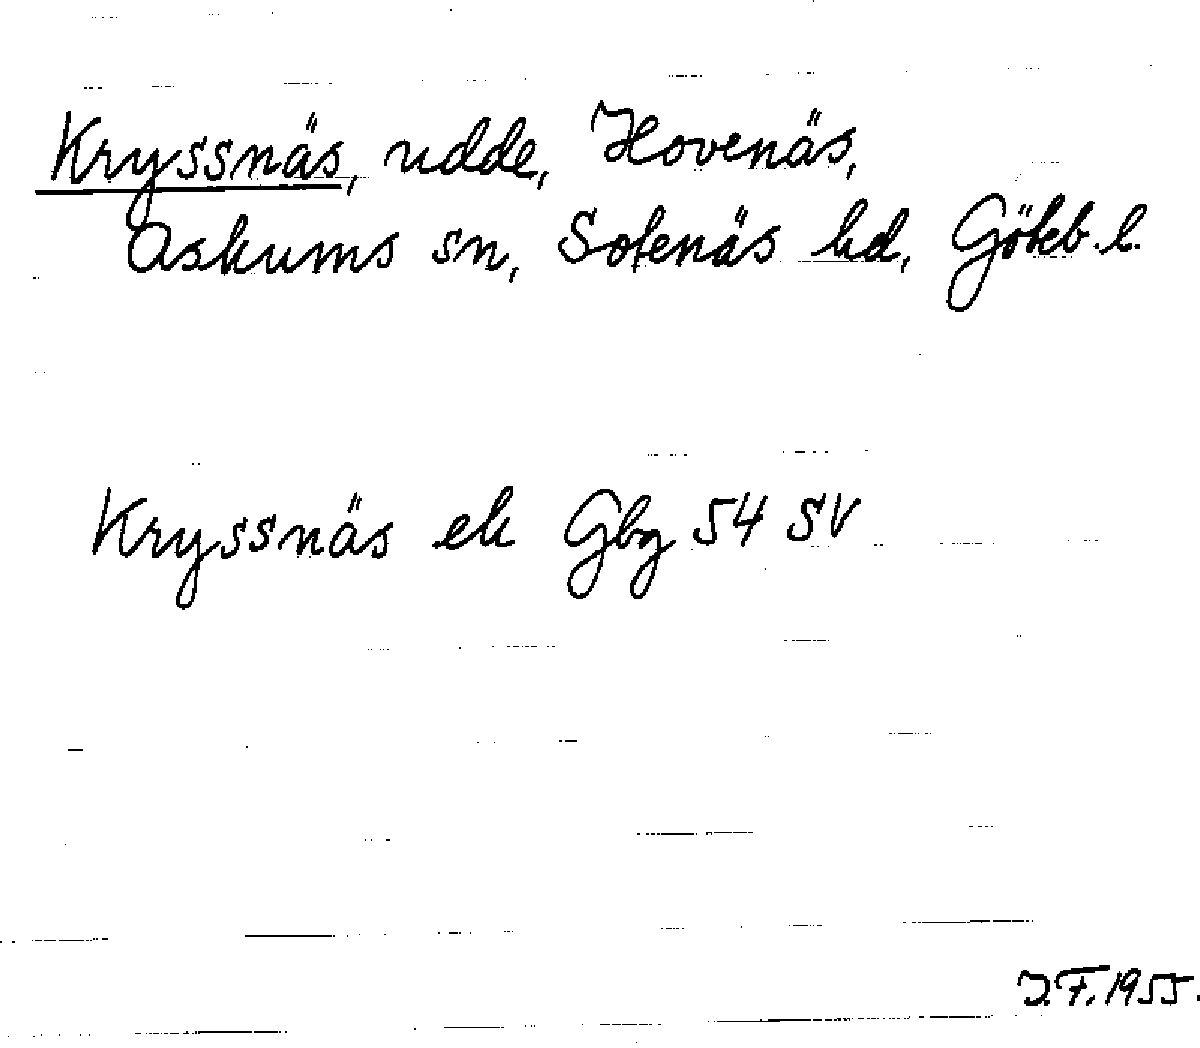 Kryssnäs, udde, Hovenäs,
Askums sn, Sotenäs hd, Göteb. l.
Kryssnäs ek Gbg 54 SV
J.F. 1955.